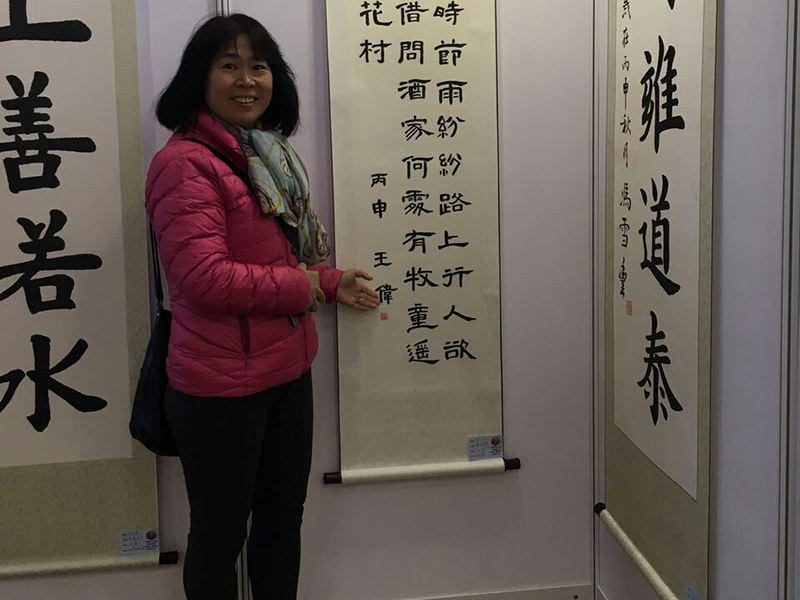 上善若水
時節雨紛紛路上行人欲
借問酒家何處有牧童遙
花村
丙申 王偉
雍道泰
在丙申秋月馮雪